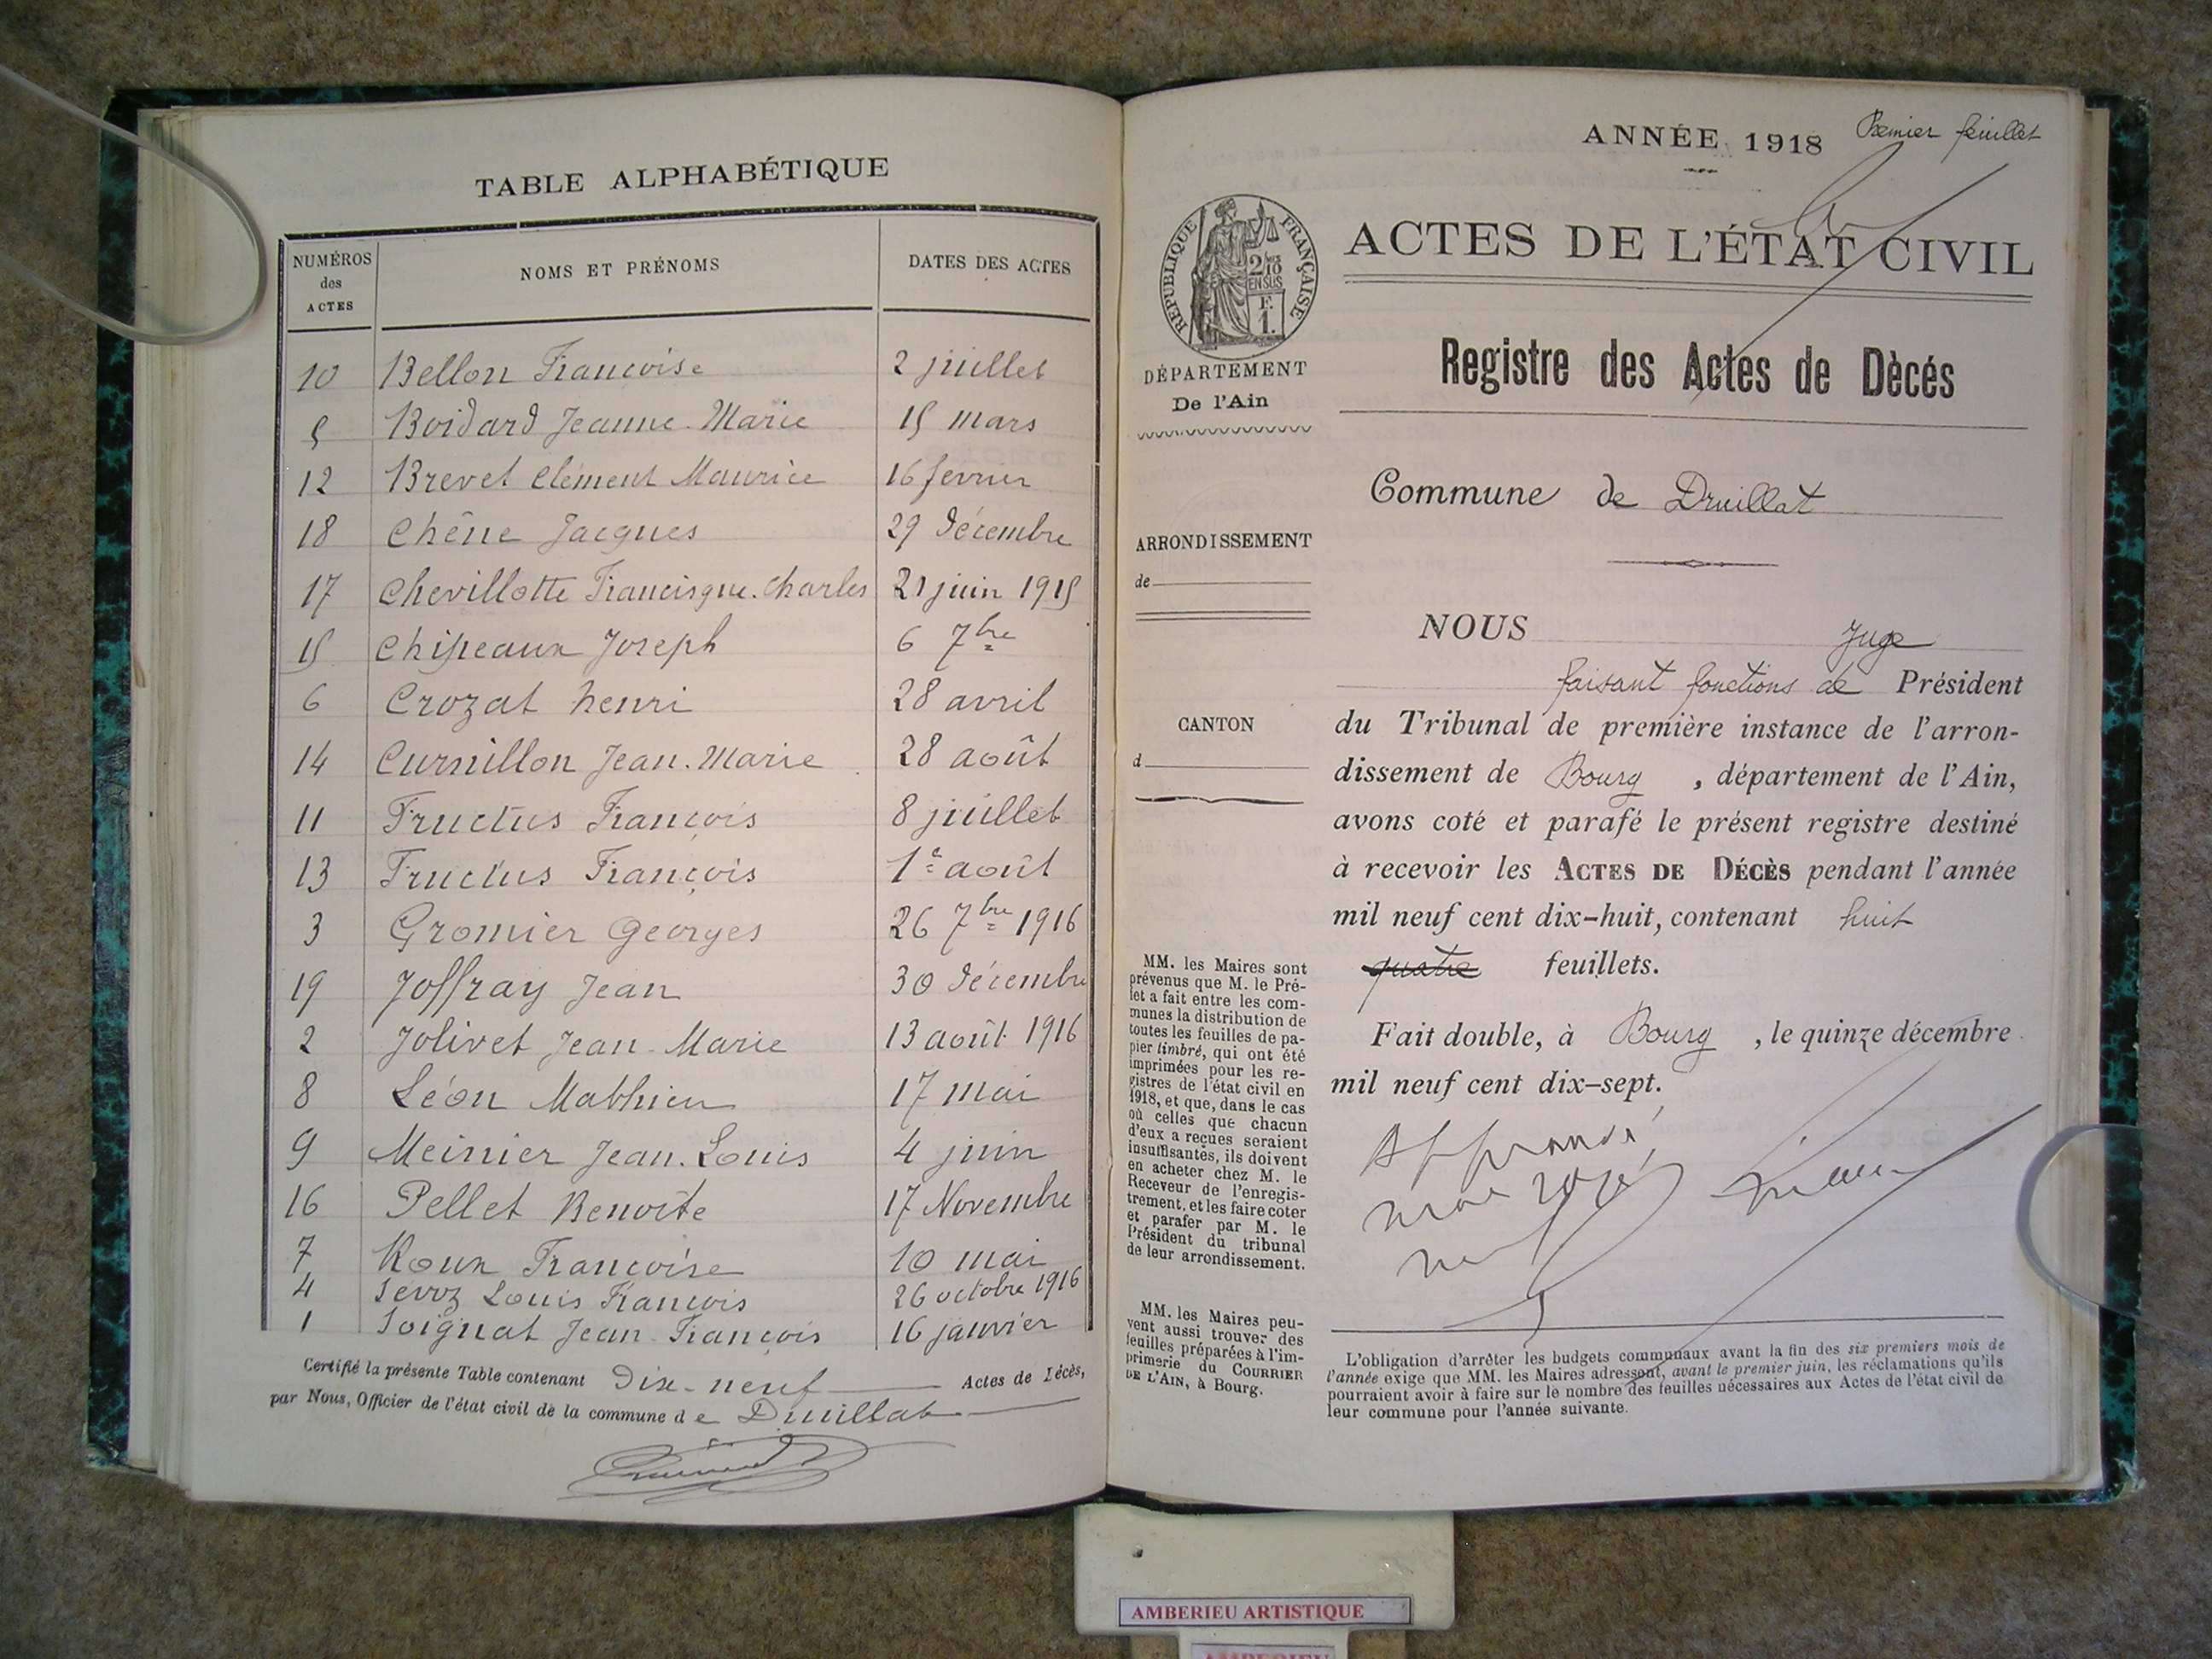 TABLE ALPHABÉTIQUE
NUMÉROS des ACTES | NOMS ET PRÉNOMS | DATES DES ACTES
10 Bellon Françoise 2 juillet
5 Boidard Jeanne-Marie 15 mars
12 Brevet Clément Maurice 16 fevrier
18 Chêne Jacques 29 décembre
17 Chevillotte Francisque-Charles 21 juin 1915
15 Chipeaux Joseph 6 7bre
6 Crozat henri 28 avril
14 Curnillon Jean-Marie 28 août
11 Fructus François 8 juillet
13 Fructus François 1er août
3 Gromier Georges 26 7bre 1916
19 Joffray Jean 30 décembre
2 Jolivet Jean-Marie 13 août 1916
8 Léon Mathieu 17 mai
9 Meinier Jean-Louis 4 juin
16 Pellet Benoîte 17 Novembre
7 Roux Françoise 10 mai
4 Servoz Louis François 26 octobre 1916
1 Soignat Jean-François 16 janvier
Certifié la présente Table contenant Dix-neuf Actes de Décès,
par Nous, Officier de l'état civil de la commune d e Druillat
ANNÉE 1918
Premier feuillet
RÉPUBLIQUE FRANÇAISE
2/10
EN SUS
F.
1.
ACTES DE L'ÉTAT CIVIL
DÉPARTEMENT
De l'Ain
Registre des Actes de Dècés
Commune de Druillat
ARRONDISSEMENT
de
CANTON
d
NOUS Juge
faisant fonctions de Président
du Tribunal de première instance de l'arron-
dissement de Bourg , département de l'Ain,
avons coté et parafé le présent registre destiné
à recevoir les ACTES DE DÉCÈS pendant l'année
mil neuf cent dix-huit, contenant huit
quatre feuillets.
Fait double, à Bourg , le quinze décembre
mil neuf cent dix-sept.
Approuvé
MM. les Maires sont
prévenus que M. le Pré-
fet a fait entre les com-
munes la distribution de
toutes les feuilles de pa-
pier timbré, qui ont été
imprimées pour les re-
gistres de l'état civil en
1918, et que, dans le cas
où celles que chacun
d'eux a reçues seraient
insuffisantes, ils doivent
en acheter chez M. le
Receveur de l'enregis-
trement, et les faire coter
et parafer par M. le
Président du tribunal
de leur arrondissement.
MM. les Maires peu-
vent aussi trouver des
feuilles préparées à l'im-
primerie du COURRIER
DE L'AIN, à Bourg.
L'obligation d'arrêter les budgets communaux avant la fin des six premiers mois de
l'année exige que MM. les Maires adressont, avant le premier juin, les réclamations qu'ils
pourraient avoir à faire sur le nombre des feuilles nécessaires aux Actes de l'état civil de
leur commune pour l'année suivante.
AMBERIEU ARTISTIQUE
AMBERIEU